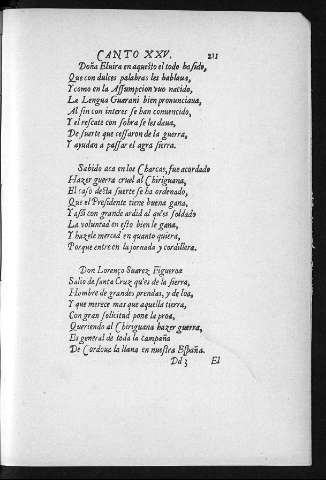 CANTO XXV. 211
Doña Eluira en aquesto el todo ha sido,
Que con dulces palabras les hablaua,
Y como en la Assumpcion vuo nacido,
La Lengua Guarani bien pronunciaua,
Al fin con interes se han conuencido,
Y el rescate con sobra se les daua,
De suerte que cessaron de la guerra,
Y ayudan a passar el agra sierra.
Sabido aca en los Charcas, fue acordado
Hazer guerra cruel al Chiriguana,
El caso desta suerte se ha ordenado,
Que el Presidente tiene buena gana,
Y assi con grande ardid al qu'es soldado
La voluntad en esto bien le gana,
Y hazele merced en quanto quiera,
Porque entre en la jornada y cordillera.
Don Lorenço Suarez Figueroa
Salio de santa Cruz qu'es de la sierra,
Hombre de grandes prendas, y de loa,
Y que merece mas que aquella tierra,
Con gran solicitud pone la proa,
Queriendo al Chiriguana hazer guerra,
Es general de toda la campaña
De Cordoua la llana en nuestra España.
Dd 3 El